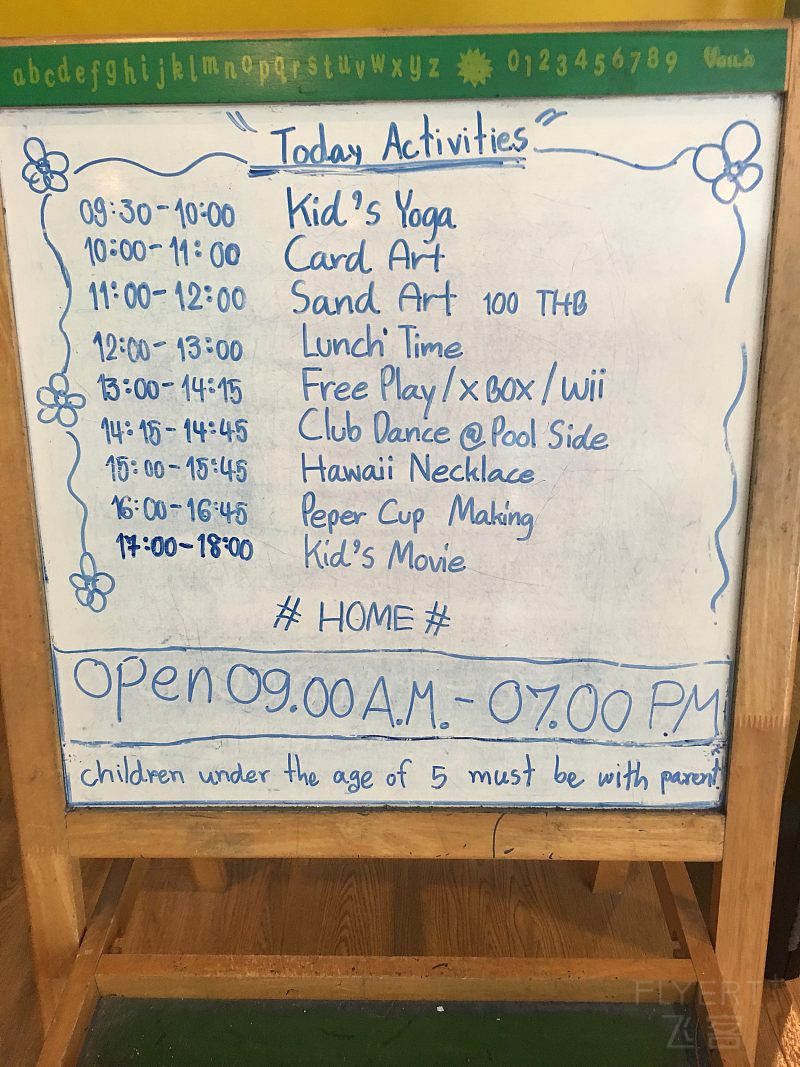 abcdefghijklmnopqrstuvwxyz 0123456789
" Today Activities "
09:30-10:00 Kid's Yoga
10:00-11:00 Card Art
11:00-12:00 Sand Art 100 THB
12:00-13:00 Lunch Time
13:00-14:15 Free Play/XBOX/Wii
14:15-14:45 Club Dance @ Pool Side
15:00-15:45 Hawaii Necklace
16:00-16:45 Peper Cup Making
17:00-18:00 Kid's Movie
# HOME #
Open 09.00 A.M. - 07.00 P.M
children under the age of 5 must be with parent
FLYERT
飞客